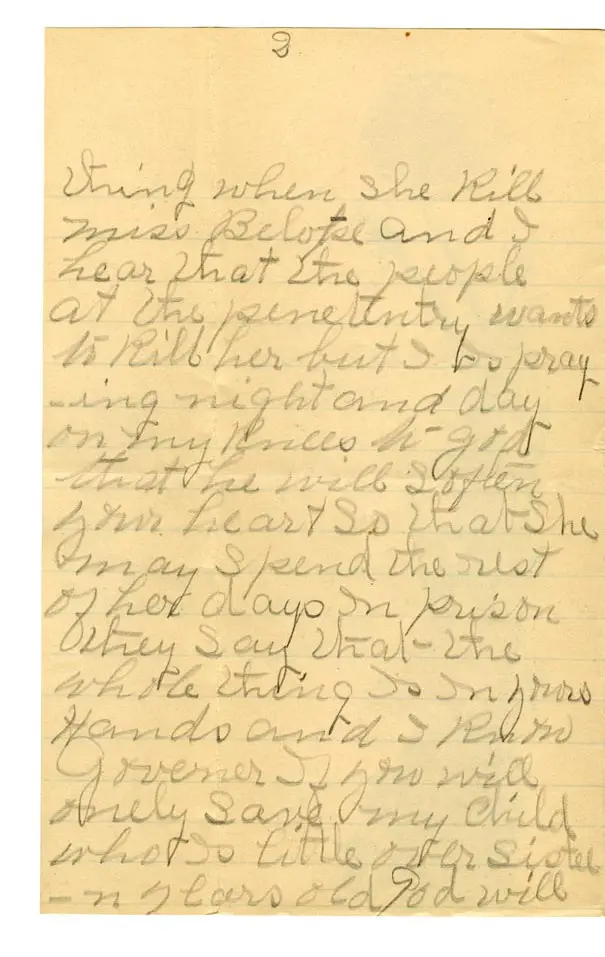 2
thing when she Kill
miss Belote and I
hear that the people
at the penetentry wants
to Kill her but I is pray
-ing night and day
on my Knees to God
that he will soften
your heart so that She
may spend the rest
of her days in prison
they say that the
whole thing is in yours
Hands and I Know
Governer if you will
onely Save my child
who is little over sixtee
-n years old God will